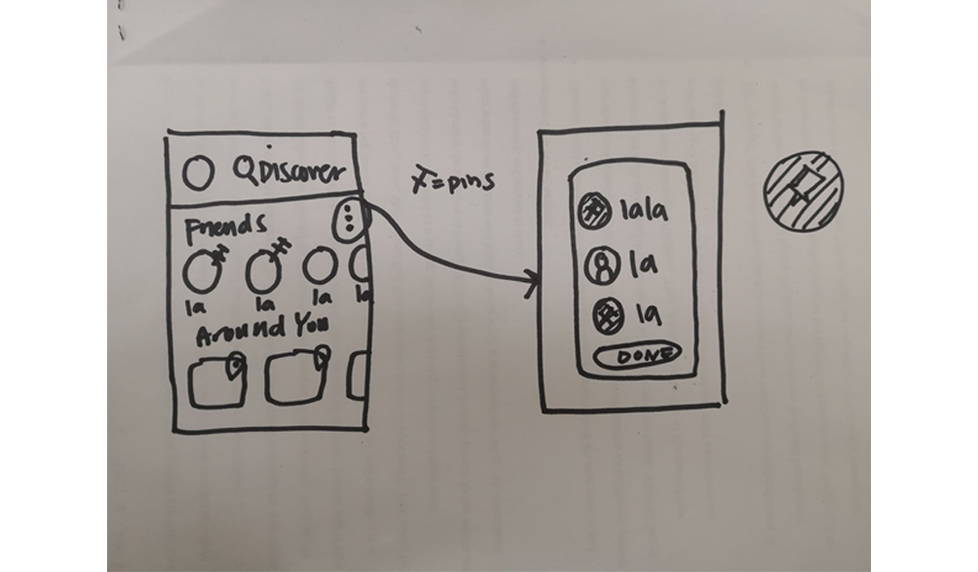 Discover
Friends
la la la la
Around You
= pins
lala
la
la
DONE